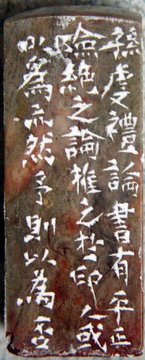 孫虔禮論書有平正
險絕之論推之於印人或
以為不然予則以為否